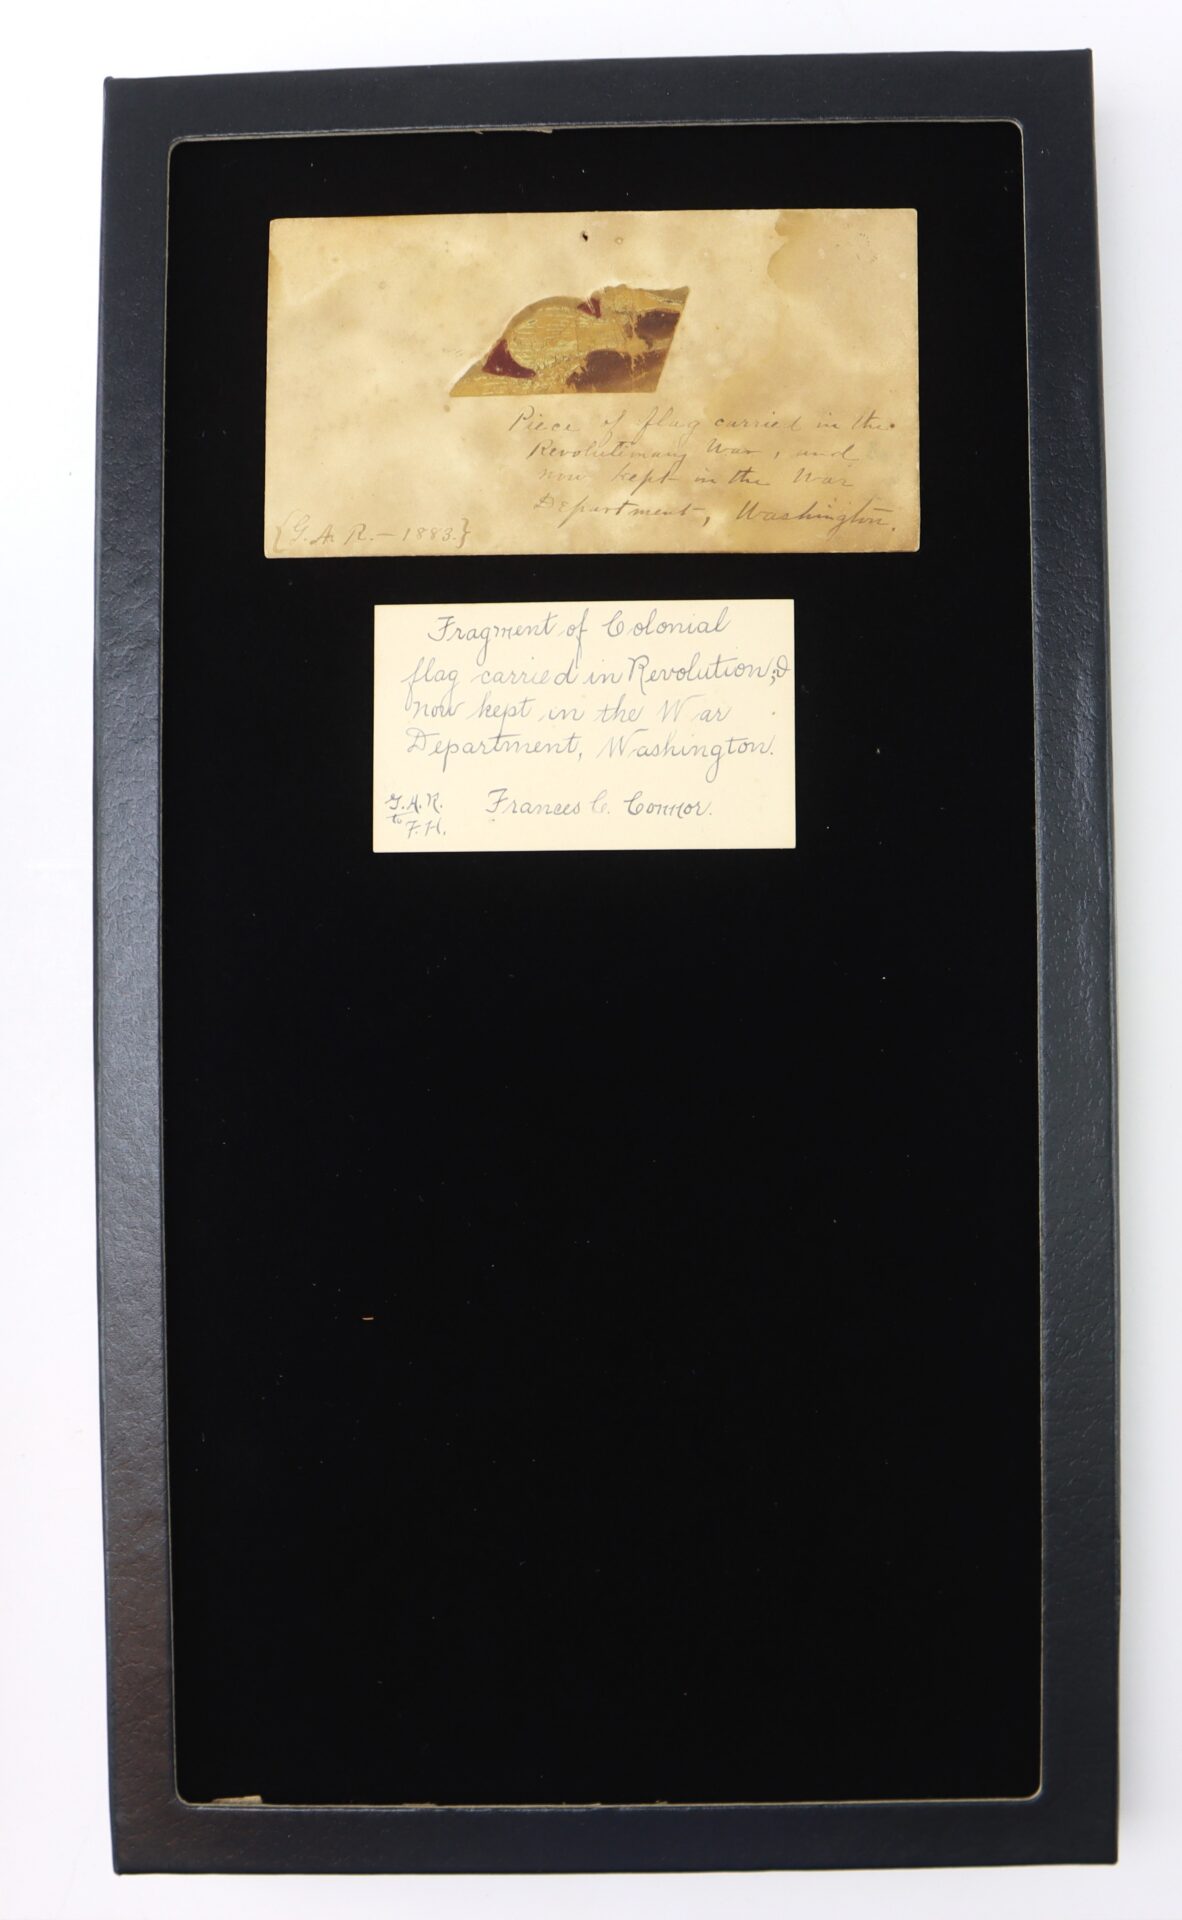 Piece of flag carried in the
Revolutionary War, and
now kept in the War
Department, Washington.
{G. A. R. – 1883.}
Fragment of Colonial
flag carried in Revolution, &
now kept in the War
Department, Washington.
G.A.R. Frances C. Connor.
to
F.H.